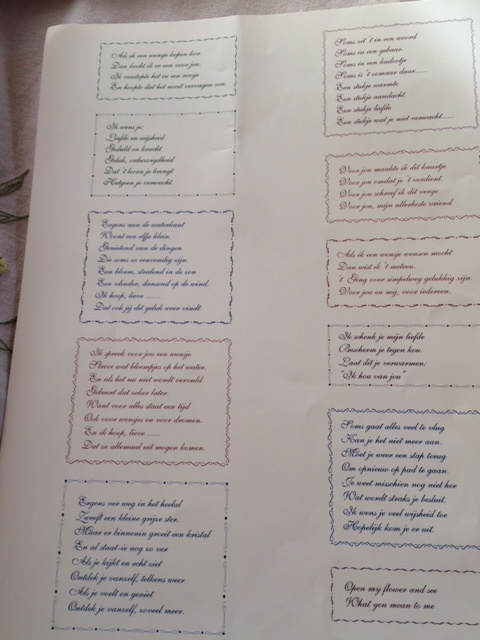 Als ik een wensje kopen kon
Dan kocht ik er een voor jou.
Ik verstopte het in een roosje
En hoopte dat het nooit vervagen zou.
Ik wens je:
Liefde en wijsheid
Geduld en kracht
Geluk, onbezorgdheid
Dat 't leven je brengt
Hetgeen je verwacht.
Ergens aan de waterkant
Woont een elfje klein.
Genietend van de dingen
Die soms zo eenvoudig zijn.
Een bloem, stralend in de zon
Een vlinder, dansend op de wind.
Ik hoop, lieve ......
Dat ook jij dit geluk weer vindt.
Ik spreek voor jou een wensje
Strooi wat bloempjes op het water.
En als het nu niet wordt vervuld
Gebeurt dat zeker later.
Want voor alles staat een tijd
Ook voor wensjes en voor dromen.
En ik hoop, lieve ......
Dat ze allemaal uit mogen komen.
Ergens ver weg in het heelal
Zweeft een kleine grijze ster.
Maar er binnenin groeit een kristal
En al staat-ie nog zo ver
Als je kijkt en echt ziet
Ontdek je vanzelf, telkens weer
Als je voelt en geniet
Ontdek je vanzelf, zoveel meer.
Soms zit 't in een woord
Soms in een gebaar.
Soms in een kadootje
Soms is 't zomaar daar......
Een stukje warmte
Een stukje aandacht.
Een stukje liefde
Een stukje wat je niet verwacht......
Voor jou maakte ik dit kaartje
Voor jou omdat je 't verdient.
Voor jou schreef ik dit versje
Voor jou, mijn allerbeste vriend
Als ik een wensje wensen mocht
Dan wist ik 't meteen.
't Ging over simpelweg gelukkig zijn
Voor jou en mij, voor iedereen.
Ik schenk je mijn liefde
Bescherm je tegen kou.
Laat dit je verwarmen:
"Ik hou van jou"
Soms gaat alles veel te vlug
Kan je het niet meer aan.
Moet je weer een stap terug
Om opnieuw op pad te gaan.
Je weet misschien nog niet hoe
Wat wordt straks je besluit.
Ik wens je veel wijsheid toe
Hopelijk kom je er uit.
Open my flower and see
What you mean to me